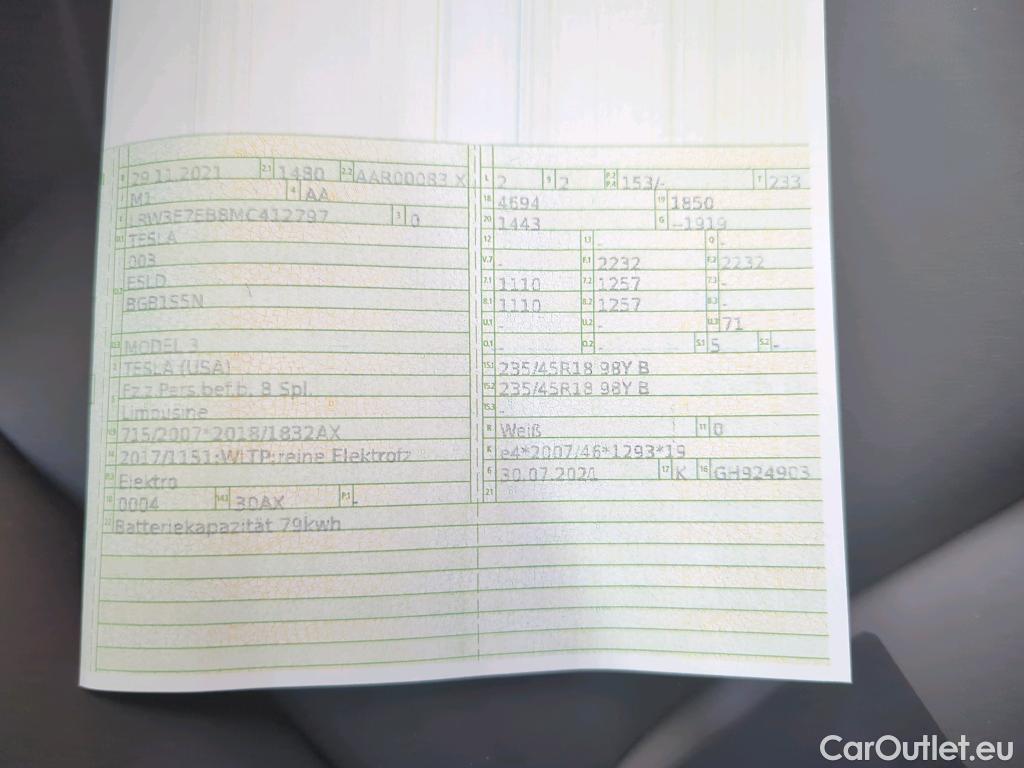 B 29.11.2021 2.1 1480 2.2 AAR00083 X
J M1 4 AA
E LRW3E7EB8MC412797 3 0
D.1 TESLA
003
D.2 E5LD
BGB1S5N
D.3 MODEL 3
2 TESLA (USA)
5 Fz.z.Pers.bef.b. 8 Spl.
Limousine
V.9 715/2007*2018/1832AX
14 2017/1151;WLTP;reine Elektrofz
P.3 Elektro
10 0004 14.1 30AX P.1 -
22 Batteriekapazität 79kwh
L 2 9 2 P.2 P.4 153/- T 233
18 4694 19 1850
20 1443 G --1919
12 - 13 - Q -
V.7 - F.1 2232 F.2 2232
7.1 1110 7.2 1257 7.3 -
8.1 1110 8.2 1257 8.3 -
U.1 - U.2 - U.3 71
O.1 - O.2 - S.1 5 S.2 -
15.1 235/45R18 98Y B
15.2 235/45R18 98Y B
15.3 -
R Weiß 11 0
K e4*2007/46*1293*19
6 30.07.2021 17 K 16 GH924903
21
CarOutlet.eu